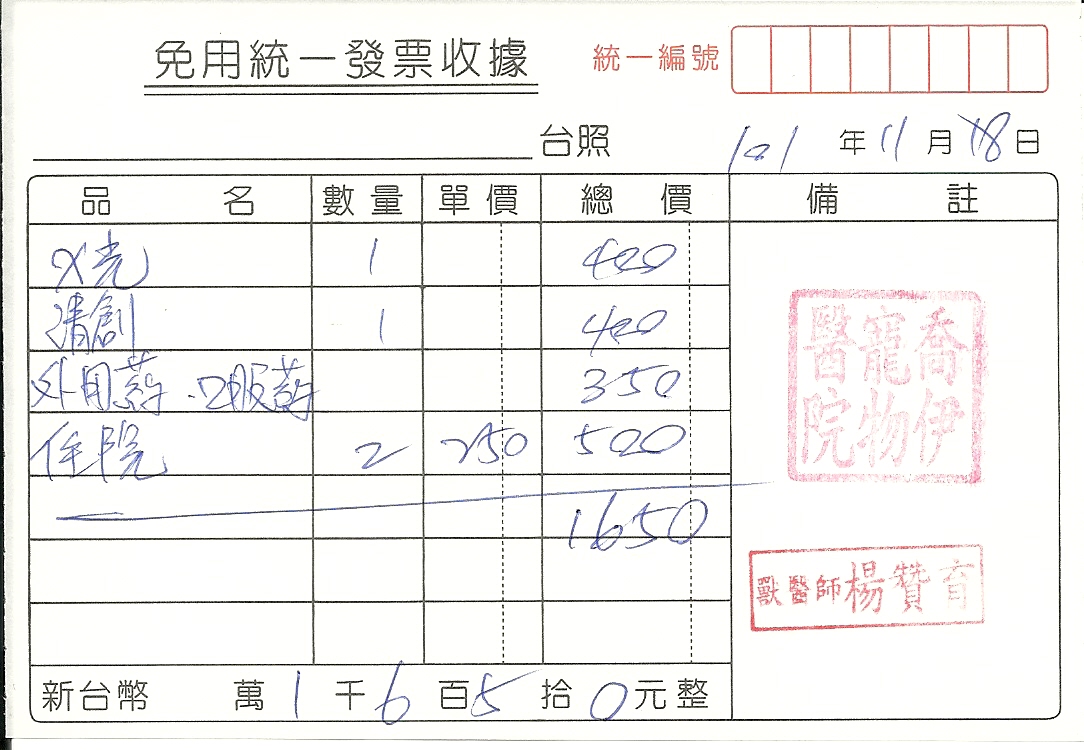 免用統一發票收據 統一編號
台照 101年11月18日
品名 數量 單價 總價 備註
X光 1 400
清創 1 400
外用葯.口服葯 350
住院 2 250 500
1650
喬伊
寵物
醫院
獸醫師楊贊育
新台幣 萬1千6百5拾0元整